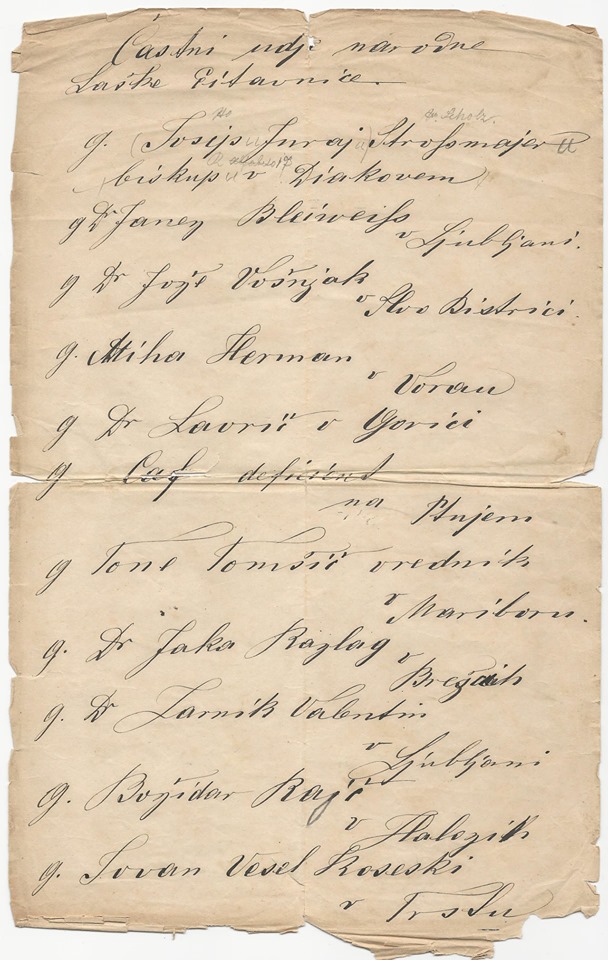 Častni udje narodne
Laške čitavnice.
g. (Josip Juraj) Strossmajer
(biskup v Diakovem)
g Dr Janez Bleiweiss
v Ljubljani.
g Dr Jože Vošnjak
v Slov Bistrici.
g. Miha Herman
v Vorau
g Dr Lavrič v Gorici
g Caf deficient
na Ptujem
g Tone Tomšič vrednik
v Mariboru.
g. Dr Jaka Razlag
v Brežcih
g. Dr Zarnik Valentin
v Ljubljani
g. Božidar Raič
v Halozih
g. Jovan Vesel Koseski
v Trstu